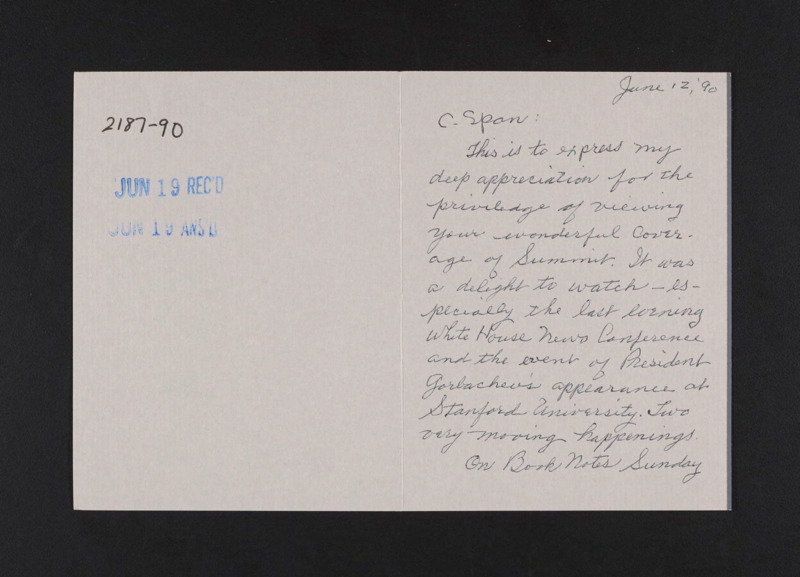 2187-90
JUN 19 REC'D
JUN 19 ANS'D
June 12, '90
C-Span:
This is to express my
deep appreciation for the
priviledge of viewing
your wonderful cover-
age of Summit. It was
a delight to watch — es-
pecially the last evening
White House News Conference
and the event of President
Gorbachev's appearance at
Stanford University. Two
very moving happenings.
On Book Notes Sunday